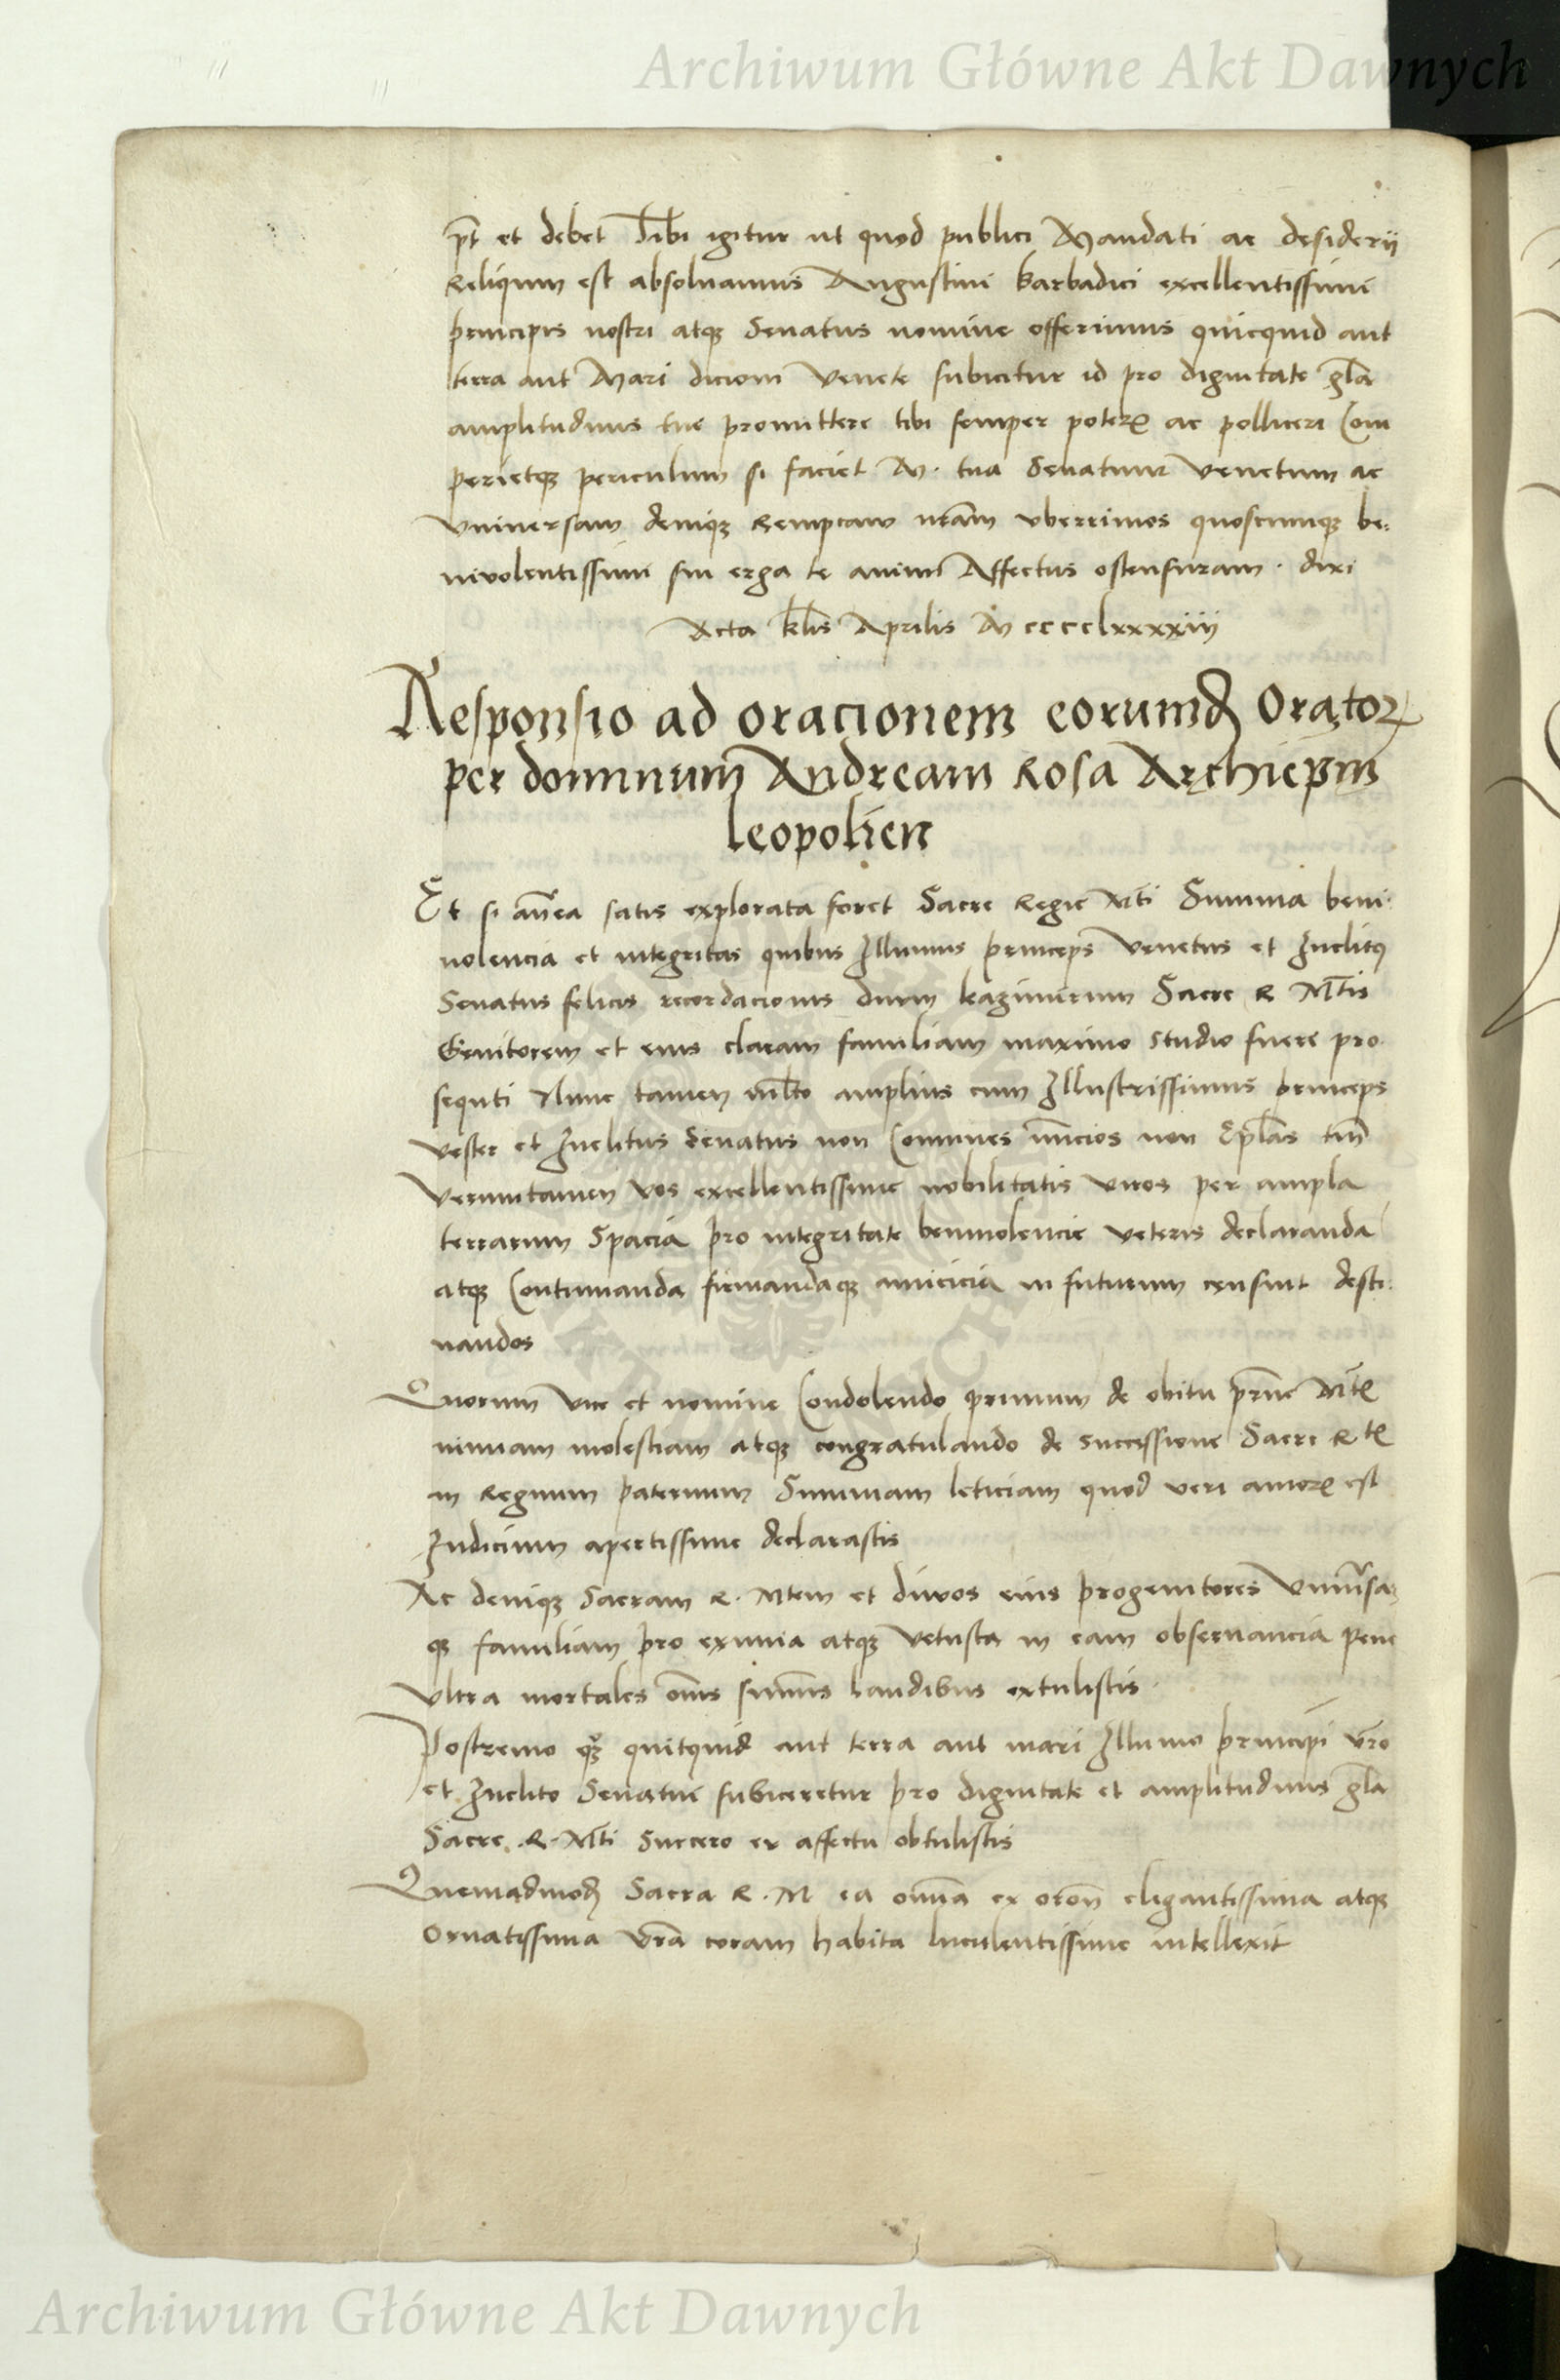 Archiwum Główne Akt Dawnych
pt et debet Tibi igitur ut quod publici Mandati ac desiderij
Reliquum est absoluamus Augustini barbadici excellentissimi
principis nostri atque Senatus nomine offerimus quicquid aut
terra aut Mari dicioni Venete subicitur id pro dignitate gla
amplitudinis tue promittere tibi semper poteris ac polliceri Com
perietque periculum si faciet M. tua Senatum Venetum ac
Vniuersam denique Rempcam nram vberrimos quoscunque be:
niuolentissimi sui erga te animi Affectus ostensuram. dixi
Acta klis Aprilis M cccclxxxxiij
Responsio ad oracionem eorumd Orator
per dominum Andream Rosa Archiepm
leopolien
Et si antea satis explorata foret Sacre Regie Mti Summa beni
uolencia et integritas quibus Illumus princeps Venetus et Inclitus
Senatus felicis recordacionis diuum kazimirum Sacre R Mtis
Genitorem et eius claram familiam maximo studio fuere pro
sequti Nunc tamen mlto amplius cum Illustrissimus princeps
vester et Inclitus Senatus non Comunes nuncios non Eplas tm
Verumtamen vos excellentissime nobilitatis viros per ampla
terrarum Spacia pro integritate beniuolencie veteris declaranda
atque Continuanda firmandaque amicicia in futurum censuit desti
nandos
Quorum vice et nomine Condolendo primum de obitu prne Mtis
nimiam molestiam atque congratulando de successione Sacre R tis
in Regnum paternum Summam leticiam quod veri amoris est
Indicium apertissime declarastis
Ac denique Sacram R. Mtem et diuos eius progenitores Vniuersa
que familiam pro eximia atque vetusta in eam obseruancia pene
vltra mortales omnis summis laudibus extulistis
Postremo quitquid aut terra aut mari Illumo principi vro
et Inclito Senatui subiceretur pro dignitate et amplitudinis gla
Sacre R. Mti Sincero ex affectu obtulistis
Quemadmod Sacra R. M ea omnia ex oron eligantissima atque
Ornatissima vra coram habita luculentissime intellexit
Archiwum Główne Akt Dawnych